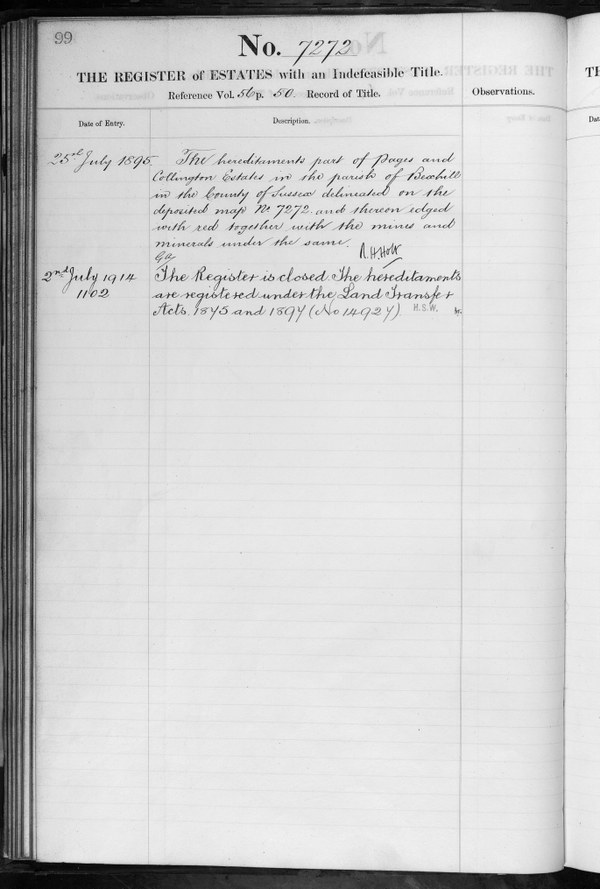 99
No. 7272
THE REGISTER of ESTATES with an Indefeasible Title.
Reference Vol. 56 p. 50. Record of Title.
Observations.
Date of Entry.
Description.
25th July 1895
The hereditaments part of Pages and
Collington Estates in the parish of Bexhill
in the County of Sussex delineated on the
deposited map No 7272 and thereon edged
with red together with the mines and
minerals under the same.
R. H. Holt
2nd July 1914
1102
The Register is closed The hereditaments
are registered under the Land Transfer
Acts. 1875 and 1897 (No 14927)
H.S.W.